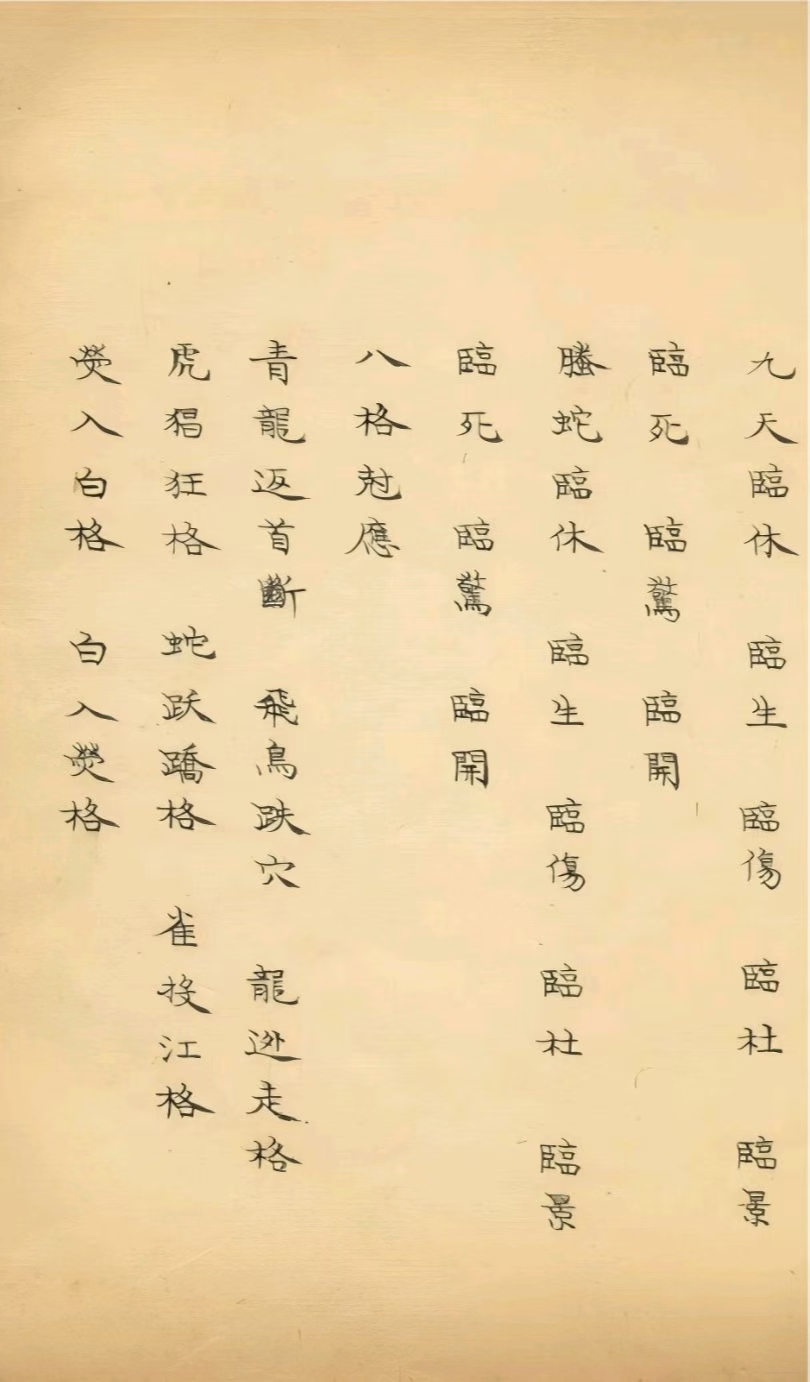 九天臨休 臨生 臨傷 臨杜 臨景
臨死 臨驚 臨開
螣蛇臨休 臨生 臨傷 臨杜 臨景
臨死 臨驚 臨開
八格尅應
青龍返首斷 飛鳥跌穴 龍迯走格
虎猖狂格 蛇跃蹻格 雀投江格
熒入白格 白入熒格